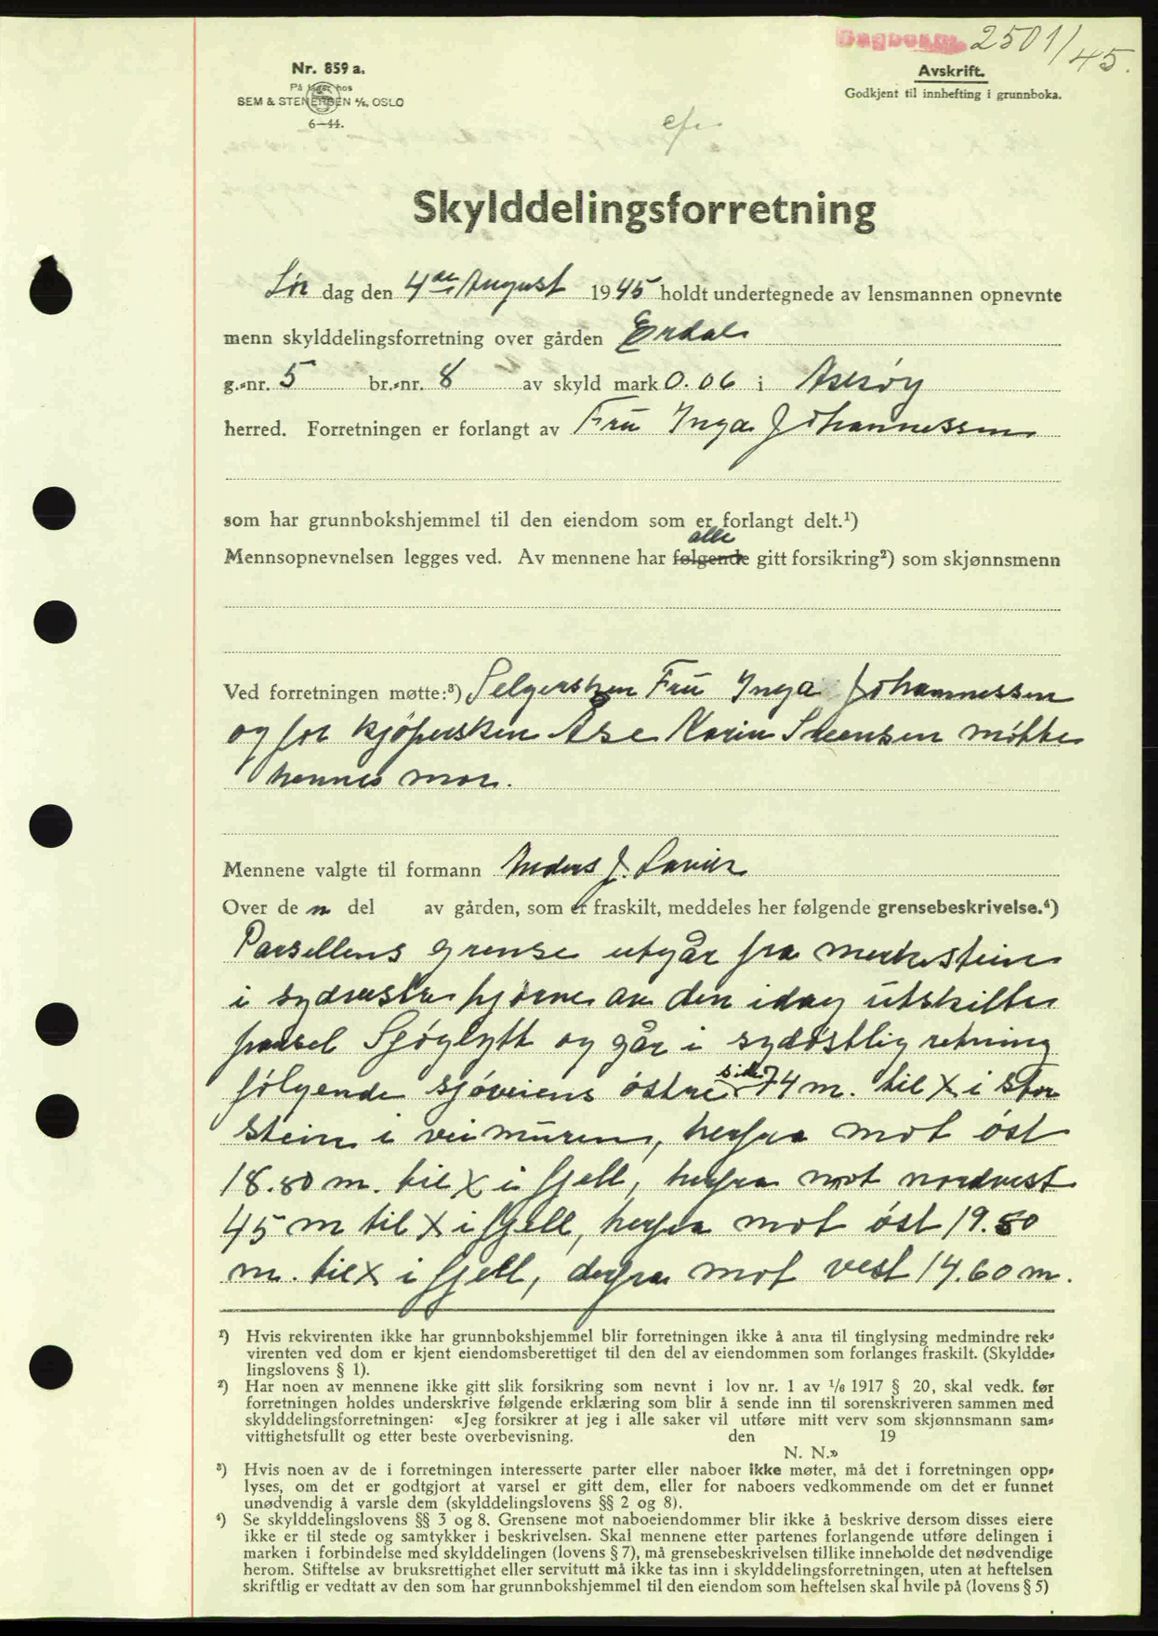 Dagboknr. 2501/45.
Nr. 859 a.
På lager hos
SEM & STENERSEN A/S, OSLO
6-44.
Avskrift.
Godkjent til innhefting i grunnboka.
Skylddelingsforretning
Lør dag den 4de August 1945 holdt undertegnede av lensmannen opnevnte
menn skylddelingsforretning over gården Erdal
g.-nr. 5 br.-nr. 8 av skyld mark 0.06 i Askøy
herred. Forretningen er forlangt av Fru Inga Johannessen
som har grunnbokshjemmel til den eiendom som er forlangt delt.¹)
alle
Mennsopnevnelsen legges ved. Av mennene har følgende gitt forsikring²) som skjønnsmenn
Ved forretningen møtte:³) Selgersken Fru Inga Johannessen
og for kjøpersken Åse Karin Svensen møtte
hennes mor.
Mennene valgte til formann Anders J.
Over de n del av gården, som er fraskilt, meddeles her følgende grensebeskrivelse.⁴)
Parsellens grense utgår fra merkestein
i sydvestre hjørne av den idag utskilte
parsel Sjøglytt og går i sydøstlig retning
følgende sjøveiens østre side 74 m. til X i stor
stein i veimuren, herfra mot øst
18.80 m. til X i fjell, herfra mot nordvest
45 m til X i fjell, herfra mot øst 19.80
m. til X i fjell, derfra mot vest 14.60 m.
¹) Hvis rekvirenten ikke har grunnbokshjemmel blir forretningen ikke å anta til tinglysing medmindre rek-
virenten ved dom er kjent eiendomsberettiget til den del av eiendommen som forlanges fraskilt. (Skyldde-
lingslovens § 1).
²) Har noen av mennene ikke gitt slik forsikring som nevnt i lov nr. 1 av 1/6 1917 § 20, skal vedk. før
forretningen holdes underskrive følgende erklæring som blir å sende inn til sorenskriveren sammen med
skylddelingsforretningen: «Jeg forsikrer at jeg i alle saker vil utføre mitt verv som skjønnsmann sam-
vittighetsfullt og etter beste overbevisning. den 19
N. N.»
³) Hvis noen av de i forretningen interesserte parter eller naboer ikke møter, må det i forretningen opp-
lyses, om det er godtgjort at varsel er gitt dem, eller for naboers vedkommende om det er funnet
unødvendig å varsle dem (skylddelingslovens §§ 2 og 8).
⁴) Se skylddelingslovens §§ 3 og 8. Grensene mot naboeiendommer blir ikke å beskrive dersom disses eiere
ikke er til stede og samtykker i beskrivelsen. Skal mennene etter partenes forlangende utføre delingen i
marken i forbindelse med skylddelingen (lovens § 7), må grensebeskrivelsen tillike inneholde det nødvendige
herom. Stiftelse av bruksrettighet eller servitutt må ikke tas inn i skylddelingsforretningen, uten at heftelsen
skriftlig er vedtatt av den som har grunnbokshjemmel til den eiendom som heftelsen skal hvile på (lovens § 5)